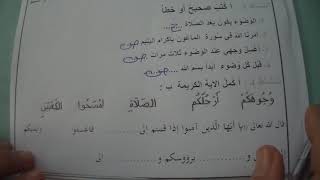 ١ اكتب صحيح أو خطأ
١. الوضوء يكون بعد الصلاة
٢. أمرنا الله في سورة الماعون بإكرام اليتيم
٣. أغسل وجهي عند الوضوء ثلاث مرات
٤. قبل كل وضوء أبدأ بسم الله
أ أكمل الآية الكريمة ب :
وُجُوهَكُمْ أَرْجُلَكُمْ الصَّلَاةِ امْسَحُوا الكَعْبَيْنِ
قال الله تعالى (يا أيها الَّذين آمنوا إذا قمتم إلى فاغسلوا وأيديكم
و برؤوسكم و إلى